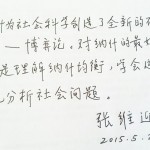 什为社会科学创造了全新的
——博弈论。对纳什的最
是理解纳什均衡,学会
分析社会问题。
张维迎
2015.5.2